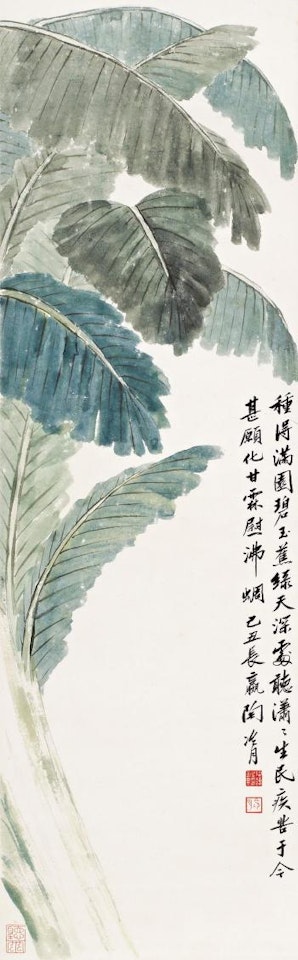 種得滿園碧玉蕉綠天深處聽瀟〻生民疾苦于今
甚願化甘霖慰沸蜩己丑長嬴陶冷月